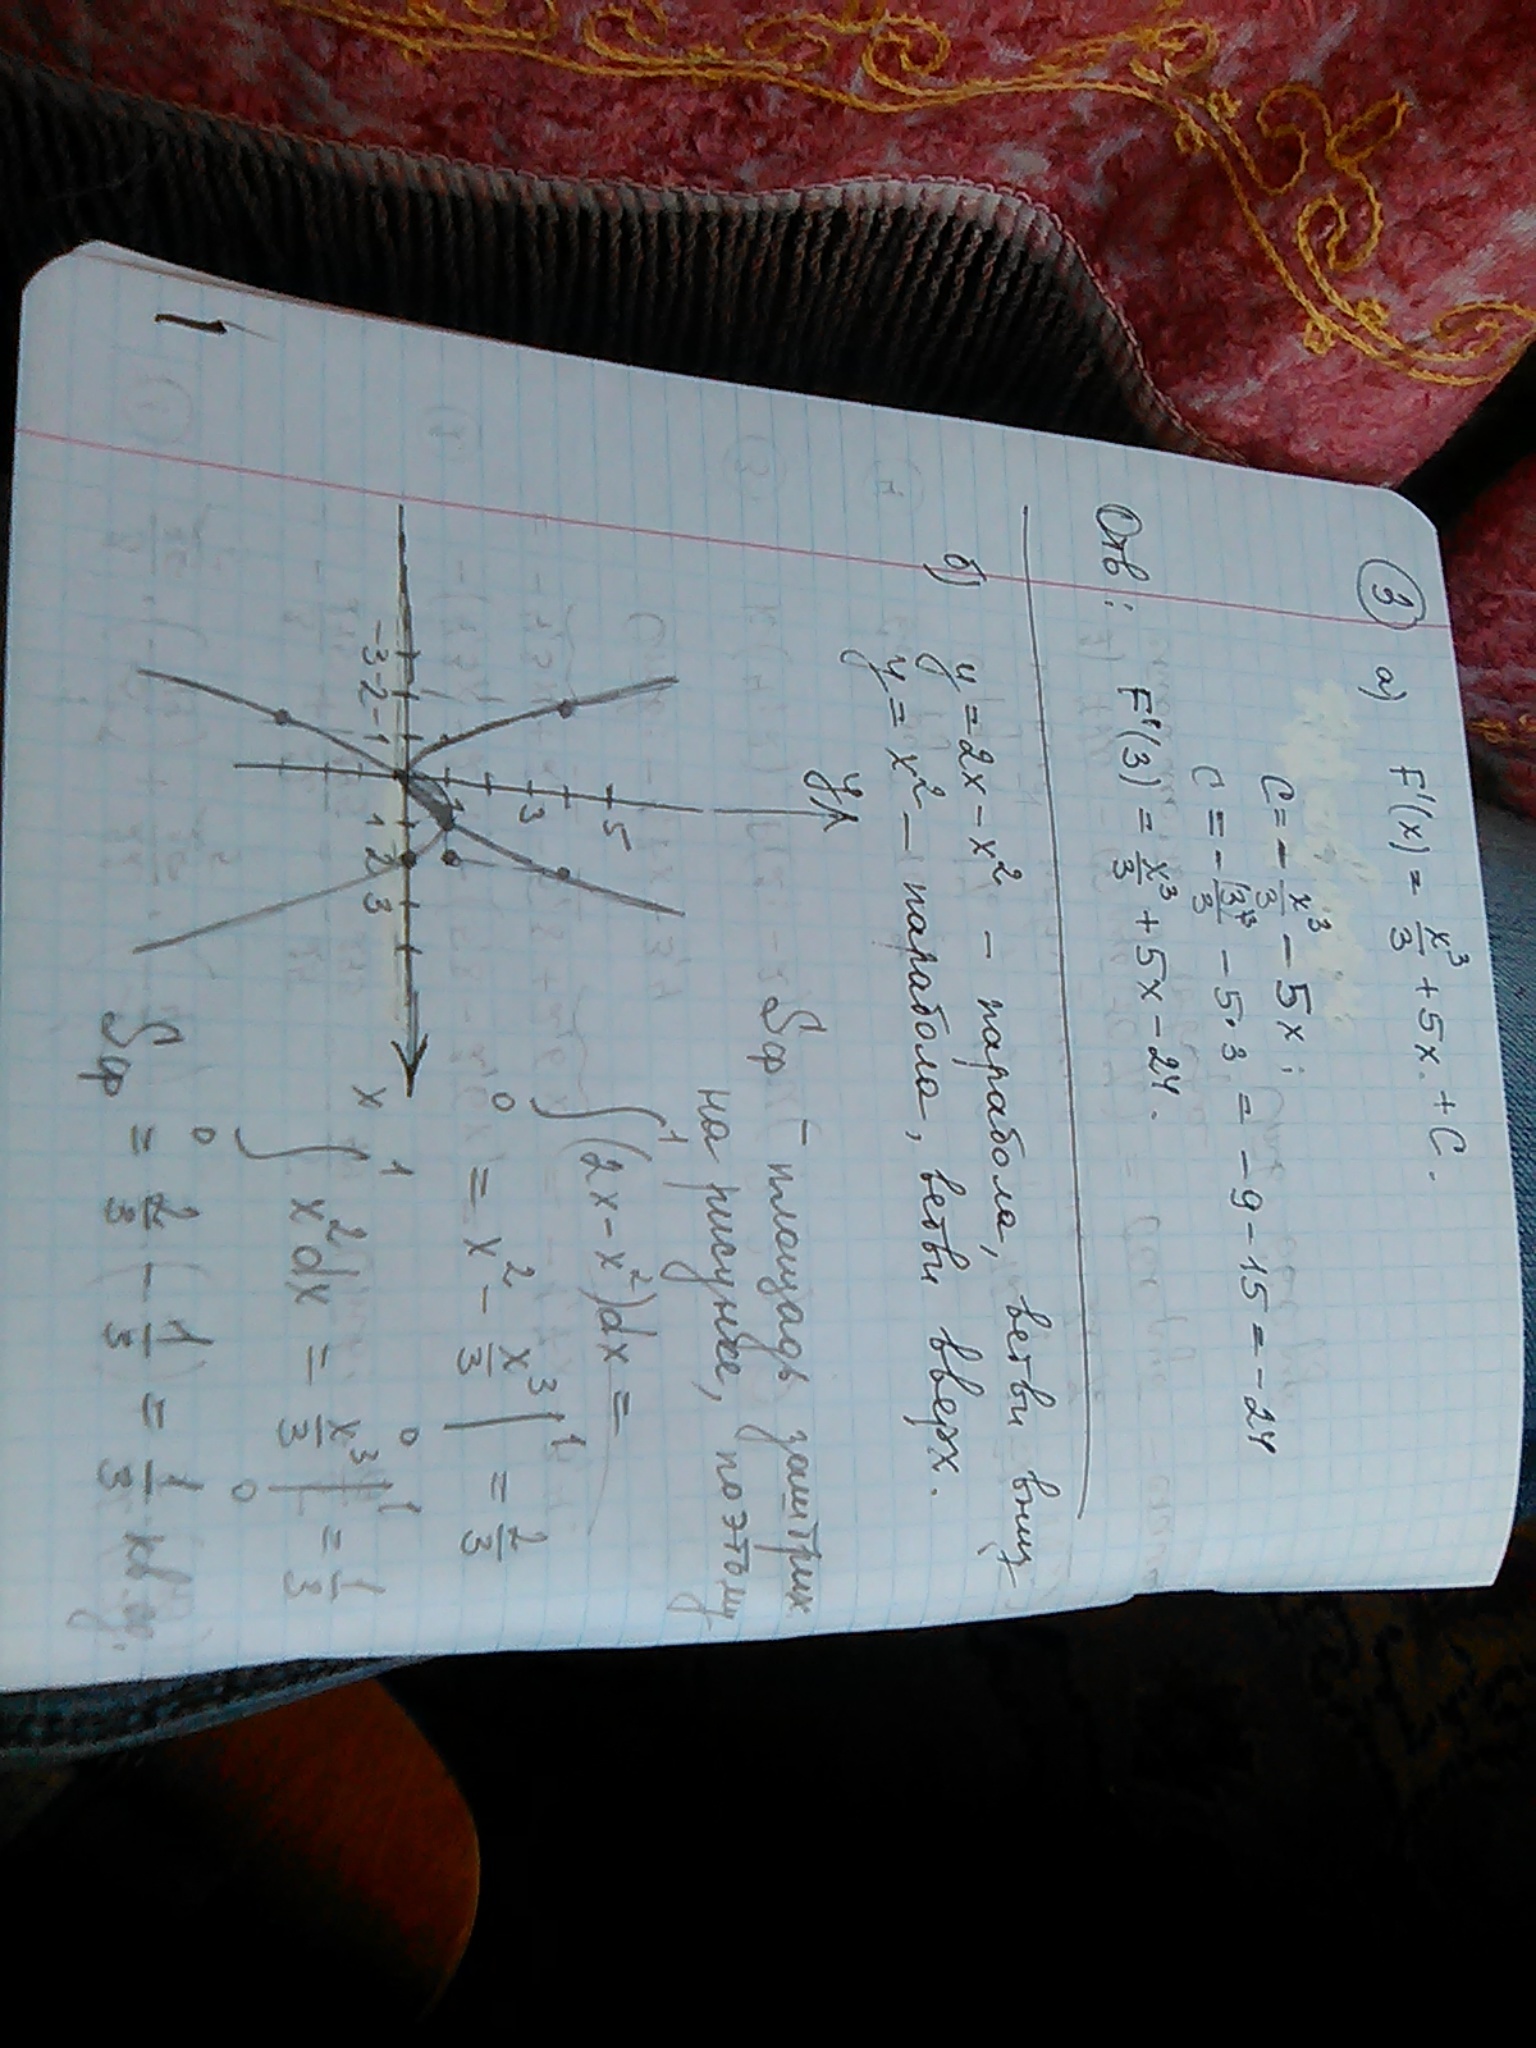 ③ а) F'(x) = x³/3 + 5x. + C.
C = - x³/3 - 5x;
C = - (3)³/3 - 5·3 = -9 - 15 = -24
Отв: F'(3) = x³/3 + 5x - 24.
б) y = 2x - x² - парабола, ветви вниз
y = x² - парабола, ветви вверх.
y
5
3
1
-3 -2 -1 1 2 3
x
Sф - площадь заштрих.
на рисунке, поэтому
₀∫¹ (2x - x²)dx =
= x² - x³/3 |₀¹ = 2/3
₀∫¹ x²dx = x³/3 |₀¹ = 1/3
Sф = 2/3 - 1/3 = 1/3 кв. ед.
1